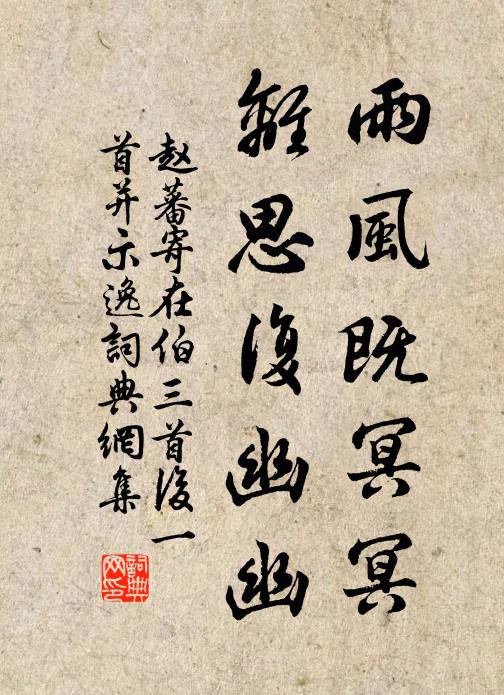 雨風既冥冥
離思復幽幽
赵蕃寄在伯三首後一
首并示逸詞典網集
詞典网印